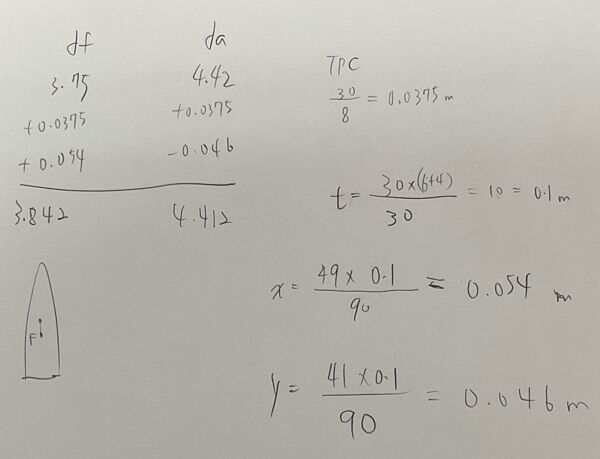 df da
3.75 4.42
+0.0375 +0.0375
+0.054 -0.046
3.842 4.412
F
TPC
30/8 = 0.0375 m
t = 30×(6+4)/30 = 10 = 0.1 m
x = 49 × 0.1/90 = 0.054 m
y = 41 × 0.1/90 = 0.046 m